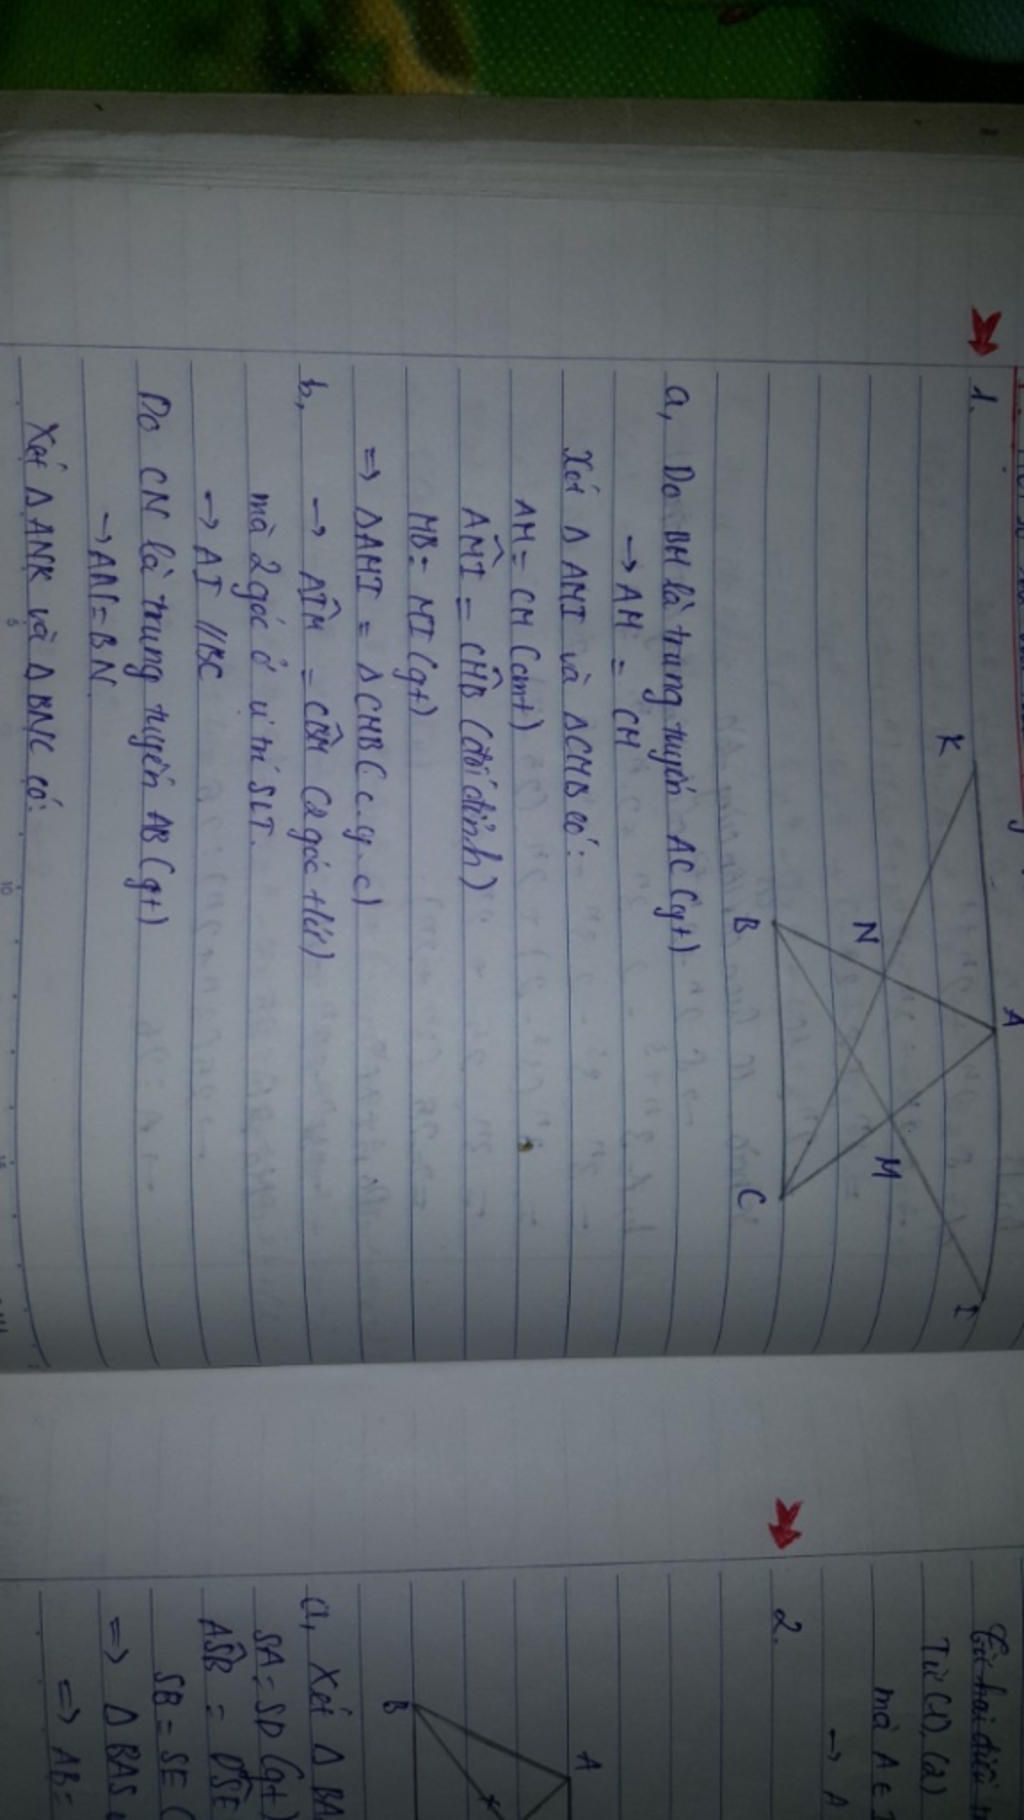 1.
K
A
N
M
I
B
C
a, Do BM là trung tuyến AC (gt)
→ AM = CM
Xét Δ AMI và ΔCMB có:
AM = CM (cmt)
AMI = CMB (đối đỉnh)
MB = MI (gt)
=> ΔAMI = ΔCMB (c.g.c)
b, → AIM = CBM (2 góc t/ứ)
mà 2 góc ở vị trí SLT.
→ AI // BC
Do CN là trung tuyến AB (gt)
→ AN = BN
Xét Δ ANK và Δ BNC có:
Từ (1), (2)
mà A ∈
→ A
2.
A
B
a, Xét Δ BA
SA = SD (gt)
ASB = DSE
SB = SE (
=> Δ BAS
=> AB =